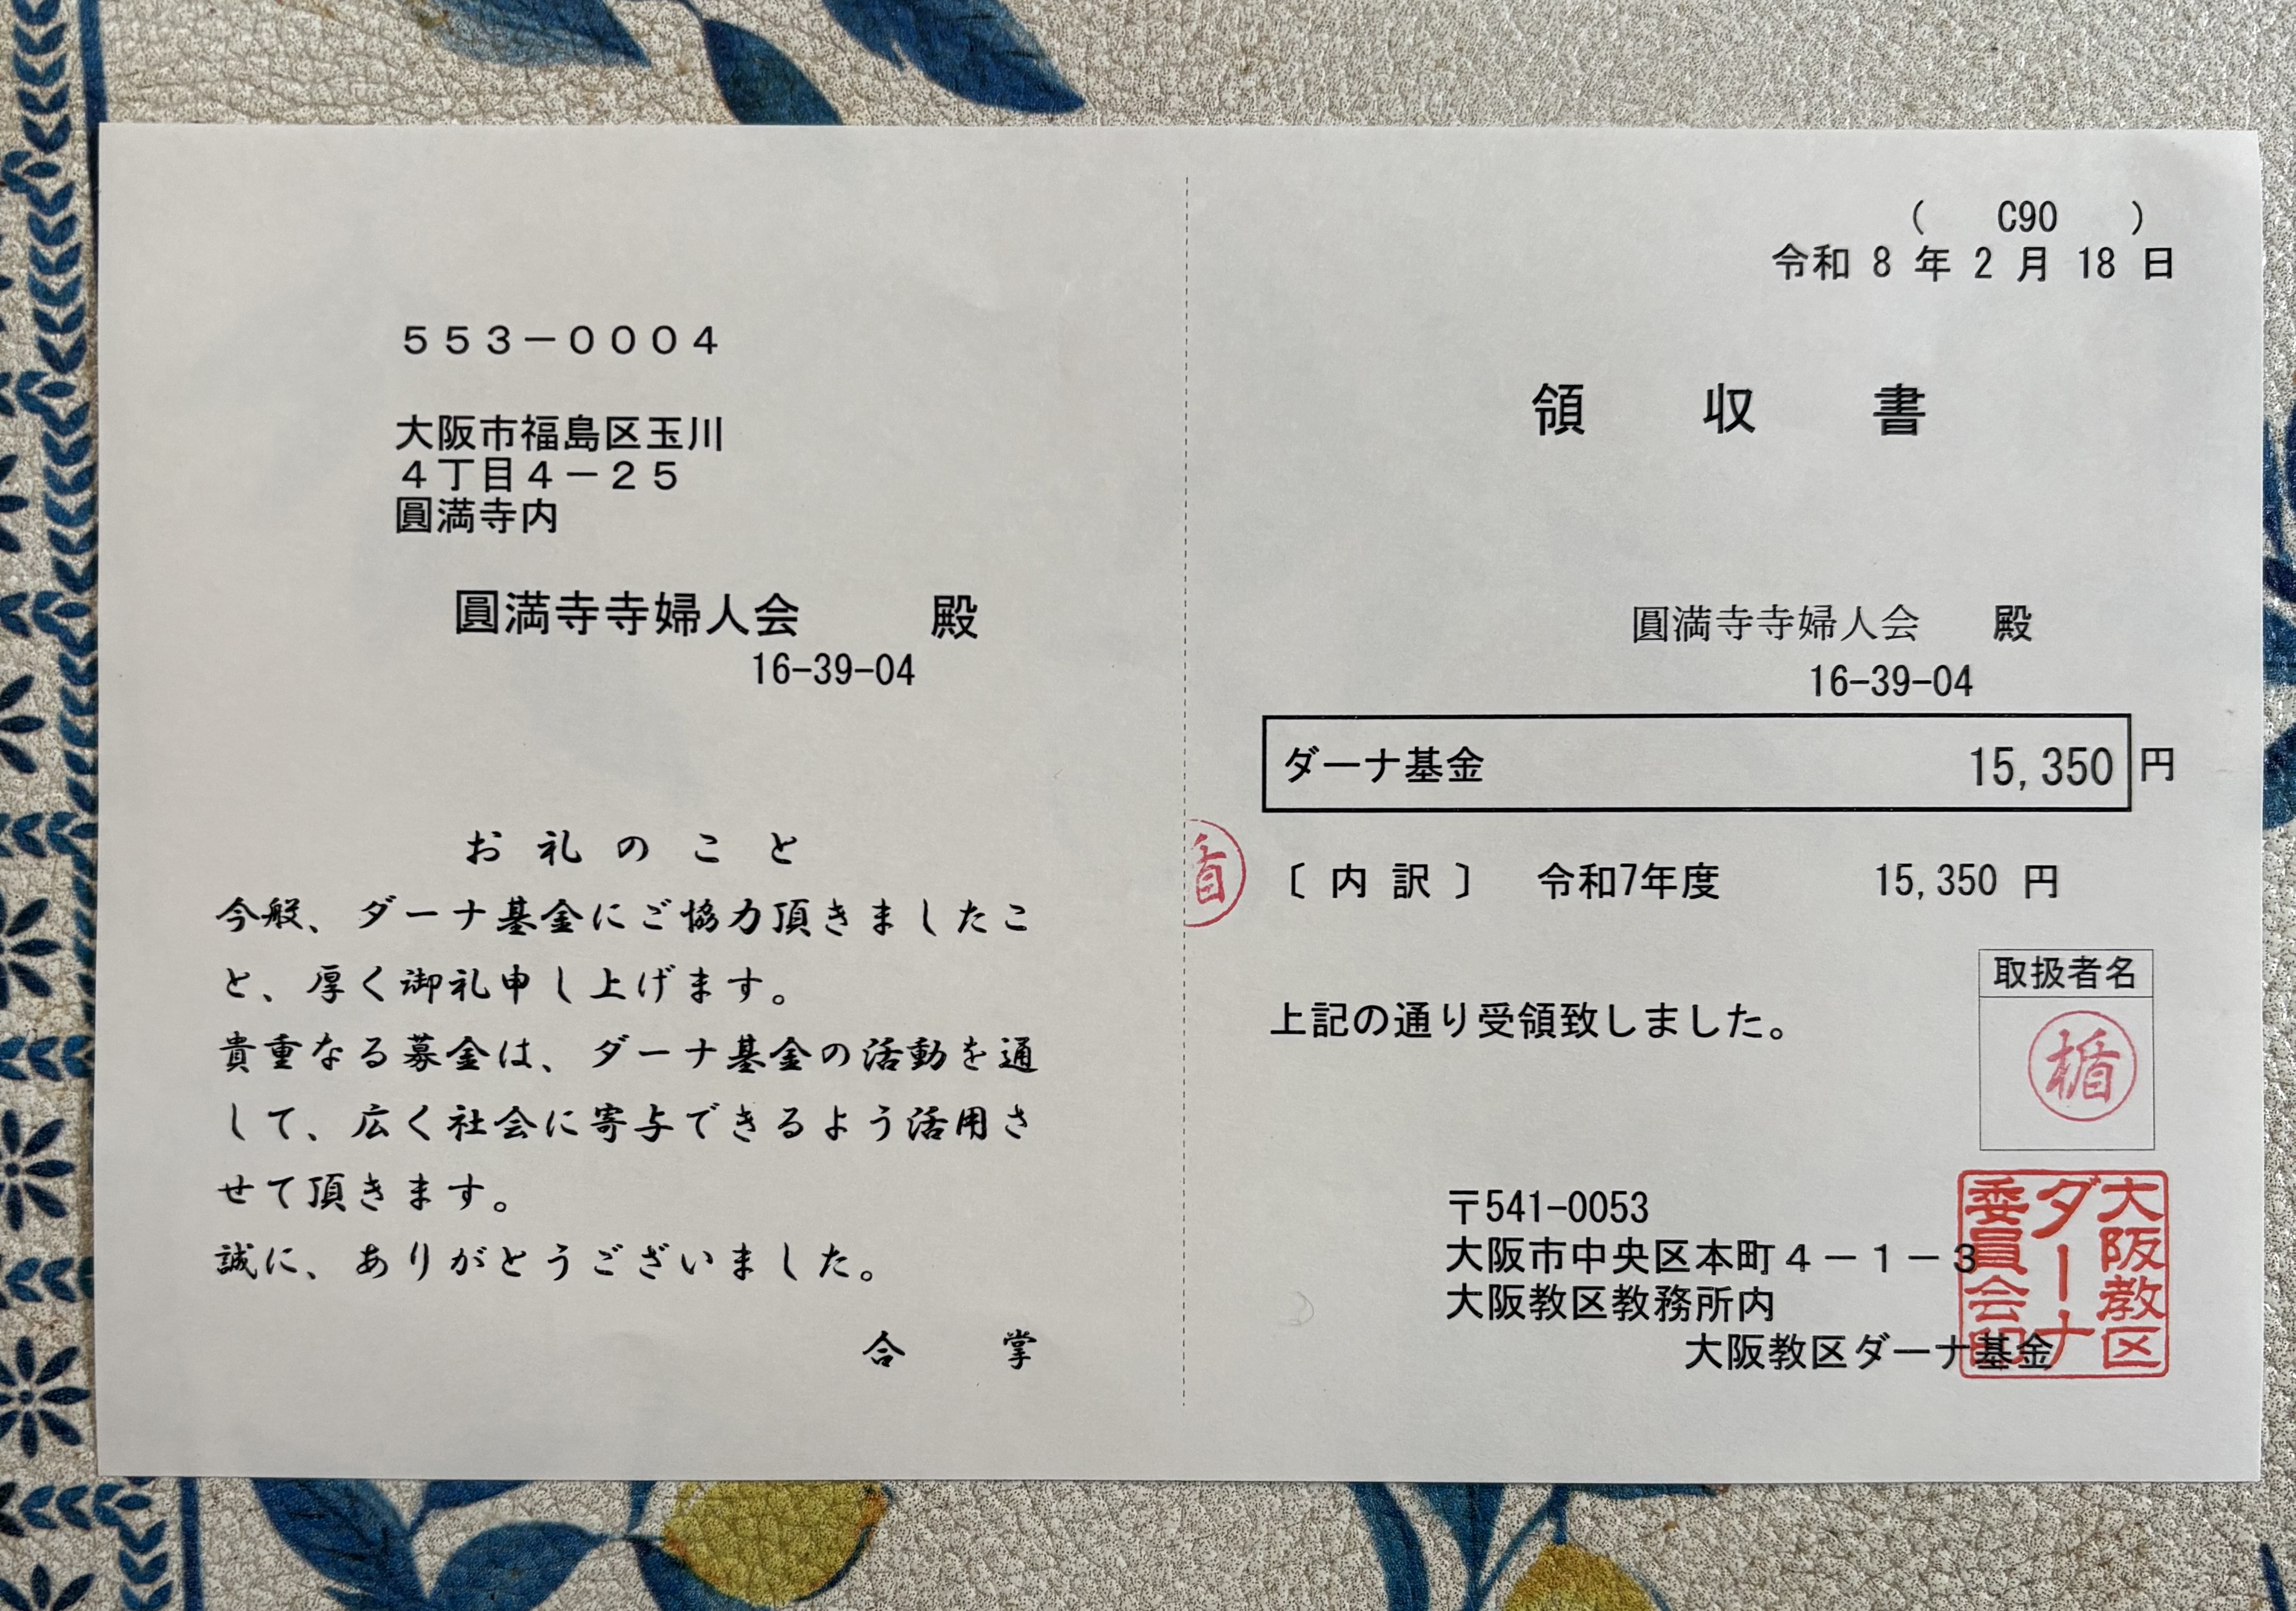 ５５３－０００４
大阪市福島区玉川
４丁目４－２５
圓満寺内
圓満寺寺婦人会　殿
16-39-04
お礼のこと
今般、ダーナ基金にご協力頂きましたこ
と、厚く御礼申し上げます。
貴重なる募金は、ダーナ基金の活動を通
して、広く社会に寄与できるよう活用さ
せて頂きます。
誠に、ありがとうございました。
合　掌
(　C90　)
令和 8 年 2 月 18 日
領　収　書
圓満寺寺婦人会　殿
16-39-04
ダーナ基金　15,350 円
〔 内 訳 〕　令和7年度　15,350 円
取扱者名
楯
上記の通り受領致しました。
〒541-0053
大阪市中央区本町４－１－３
大阪教区教務所内
大阪教区ダーナ基金
大阪教区
ダーナ
委員会印